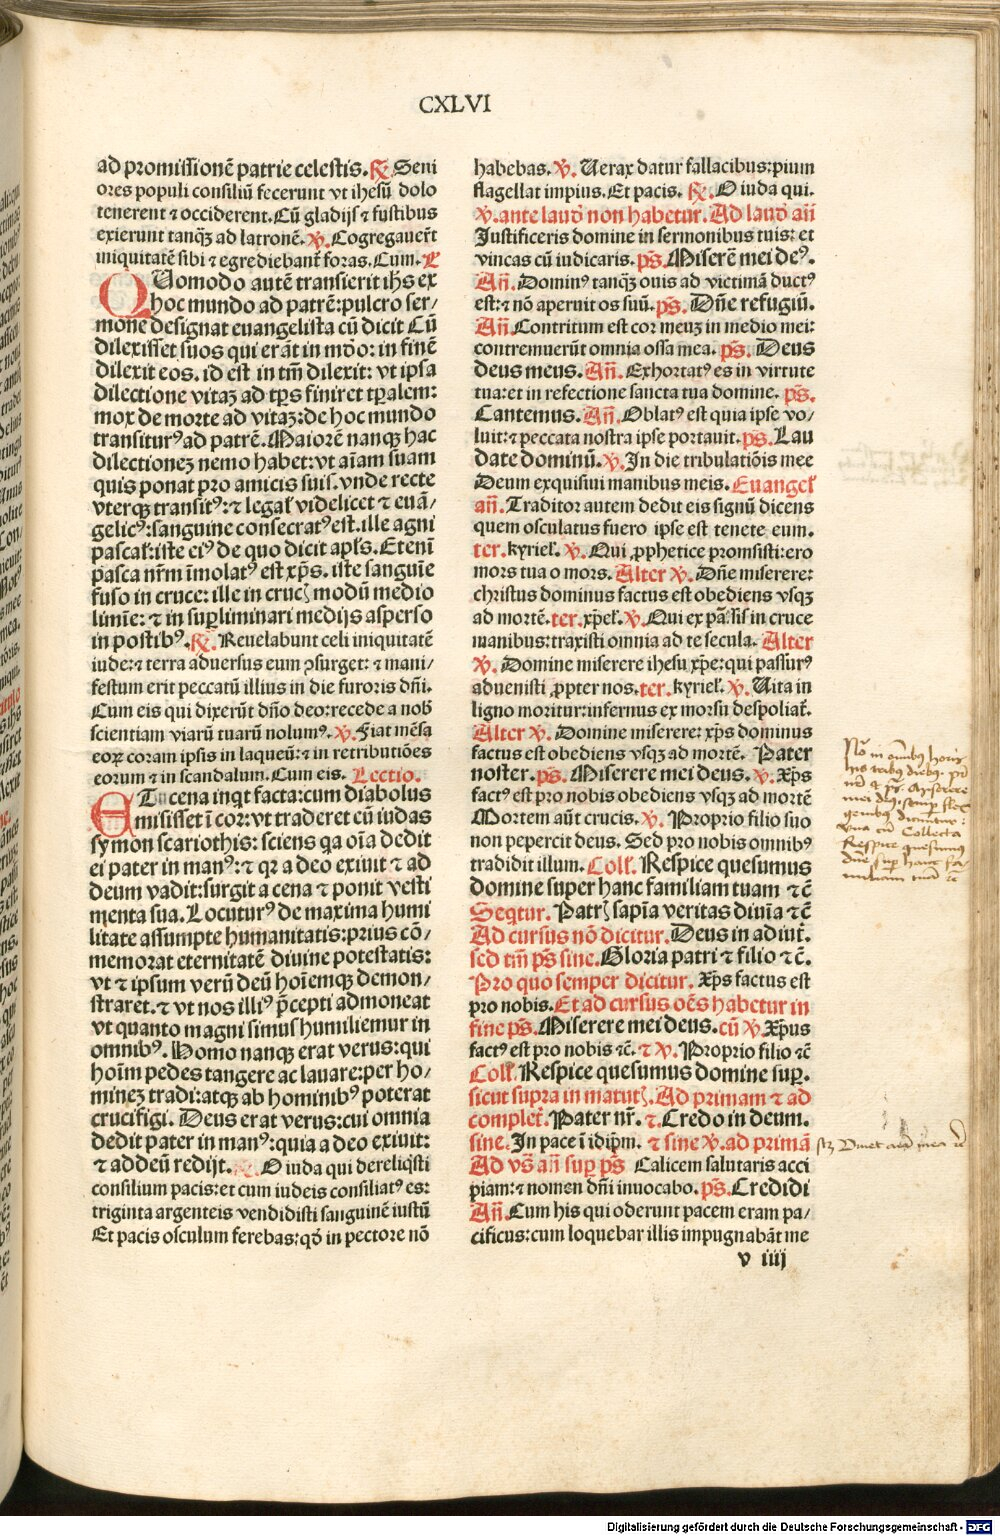 CXLVI
ad promissionē patrie celestis. ℟. Seni
ores populi consiliū fecerunt vt ihesū dolo
tenerent ⁊ occiderent. Cū gladijs ⁊ fustibus
exierunt tanqꝫ ad latronē. ℣. Cogregauer̄t
iniquitatē sibi ⁊ egrediebant̄ foras. Cum.
QUomodo autē transierit ihs ex
hoc mundo ad patrē: pulcro ser⸗
mone designat euangelista cū dicit Cū
dilexisset suos qui erāt in mdo: in finē
dilexit eos. id est in tm̄ dilexit: vt ipsa
dilectione vitaꝫ ad tp̄s finiret tp̄alem:
mox de morte ad vitaꝫ: de hoc mundo
transiturꝰ ad patrē. Maiorē nanqꝫ hac
dilectioneꝫ nemo habet: vt aīam suam
quis ponat pro amicis suis. vnde recte
vterqꝫ transitꝰ: ⁊ legał videlicet ⁊ euā⸗
gelicꝰ: sanguine consecratꝰ est. ille agni
pascał: iste eiꝰ de quo dicit apl̄s. Etenī
pasca nr̄m īmolatꝰ est xp̄s. iste sanguīe
fuso in cruce: ille in crucꝭ modū medio
limīe: ⁊ in supliminari medijs asperso
in postibꝰ. ℟. Reuelabunt celi iniquitatē
iude: ⁊ terra aduersus eum ꝯsurget: ⁊ mani⸗
festum erit peccatū illius in die furoris dn̄i.
Cum eis qui dixerūt dn̄o deo: recede a nob̄
scientiam viarū tuarū nolumꝰ. ℣. Fiat mēsa
eoꝝ coram ipsis in laqueū: ⁊ in retributiōes
eorum ⁊ in scandalum. Cum eis. Lectio.
ET cena inqt facta: cum diabolus
misisset ī cor: vt traderet cū iudas
symon scariothis: sciens qa oīa dedit
ei pater in manꝰ: ⁊ qr a deo exiuit ⁊ ad
deum vadit: surgit a cena ⁊ ponit vesti
menta sua. Locuturꝰ de maxima humi
litate assumpte humanitatis: prius cō⸗
memorat eternitatē diuine potestatis:
vt ⁊ ipsum verū deū hoīemqꝫ demon⸗
straret. ⁊ vt nos illiꝰ p̄cepti admoneat
vt quanto magni simus humiliemur in
omnibꝰ. Homo nanqꝫ erat verus: qui
hoīm pedes tangere ac lauare: per ho⸗
mineꝫ tradi: atqꝫ ab hominibꝰ poterat
crucifigi. Deus erat verus: cui omnia
dedit pater in manꝰ: quia a deo exiuit:
⁊ ad deū redijt. ℟. O iuda qui dereliqsti
consilium pacis: et cum iudeis consiliatꝰ es:
triginta argenteis vendidisti sanguinē iustū
Et pacis osculum ferebas: qd̓ in pectore nō
habebas. ℣. Uerax datur fallacibus: pium
flagellat impius. Et pacis. ℟. O iuda qui.
℣. ante laud̓ non habetur. Ad laud̓ an̄
Justificeris domine in sermonibus tuis: et
vincas cū iudicaris. ps̄. Miserē mei deꝰ.
An̄. Dominꝰ tanqꝫ ouis ad victimā ductꝰ
est: ⁊ nō aperuit os suū. ps̄. Dn̄e refugiū.
An̄. Contritum est cor meuꝫ in medio mei:
contremuerūt omnia ossa mea. ps̄. Deus
deus meus. An̄. Exhortatꝰ es in virtute
tua: et in refectione sancta tua domine. ps̄.
Cantemus. An̄. Oblatꝰ est quia ipse vo⸗
luit: ⁊ peccata nostra ipse portauit. ps̄. Lau
date dominū. ℣. In die tribulatiōis mee
Deum exquisiui manibus meis. Euangeł
an̄. Traditor autem dedit eis signū dicens
quem osculatus fuero ipse est tenete eum.
ter. kyrieł. ℣. Qui ꝓphetice promsisti: ero
mors tua o mors. Alter ℣. Dn̄e miserere:
christus dominus factus est obediens vsqꝫ
ad mortē. ter. xp̄eł. ℣. Qui ex pāsis in cruce
manibus: traxisti omnia ad te secula. Alter
℣. Domine miserere ihesu xp̄e: qui passurꝰ
aduenisti ꝓpter nos. ter. kyrieł. ℣. Uita in
ligno moritur: infernus ex morsu despoliat̄.
Alter ℣. Domine miserere: xp̄s dominus
factus est obediens vsqꝫ ad mortē. Pater
noster. ps̄. Miserere mei deus. ℣. Xp̄s
factꝰ est pro nobis obediens vsqꝫ ad mortē
Mortem aūt crucis. ℣. Proprio filio suo
non pepercit deus. Sed pro nobis omnibꝰ
tradidit illum. Coll̄. Respice quesumus
domine super hanc familiam tuam ⁊c̄
Seqtur. Patrꝭ sapīa veritas diuīa ⁊c̄
Ad cursus nō dicitur. Deus in adiut̄.
sed tm̄ ps̄ sine. Gloria patri ⁊ filio ⁊c̄.
Pro quo semper dicitur. Xp̄s factus est
pro nobis. Et ad cursus oēs habetur in
fine ps̄. Miserere mei deus. cū ℣. Xp̄us
factꝰ est pro nobis ⁊c̄. ⁊ ℣. Proprio filio ⁊c̄
Coll̄. Respice quesumus domine sup.
sicut supra in matutꝭ. Ad primam ⁊ ad
complet̄. Pater nr̄. ⁊. Credo in deum.
sine. In pace ī idipm̄. ⁊ sine ℣. ad primā
Ad vs̄ an̄ sup ps̄ Calicem salutaris acci
piam: ⁊ nomen dn̄i inuocabo. ps̄. Credidi
An̄. Cum his qui oderunt pacem eram pa⸗
cificus: cum loquebar illis impugnabāt me
v iiij
his tribꝫ diebꝫ
Miserere
mei
dicuntur:
Vna cū Collecta
Respice quesumus
dn̄e sup hanc fa⸗
miliam tuā ⁊c̄
Digitalisierung gefördert durch die Deutsche Forschungsgemeinschaft - DFG